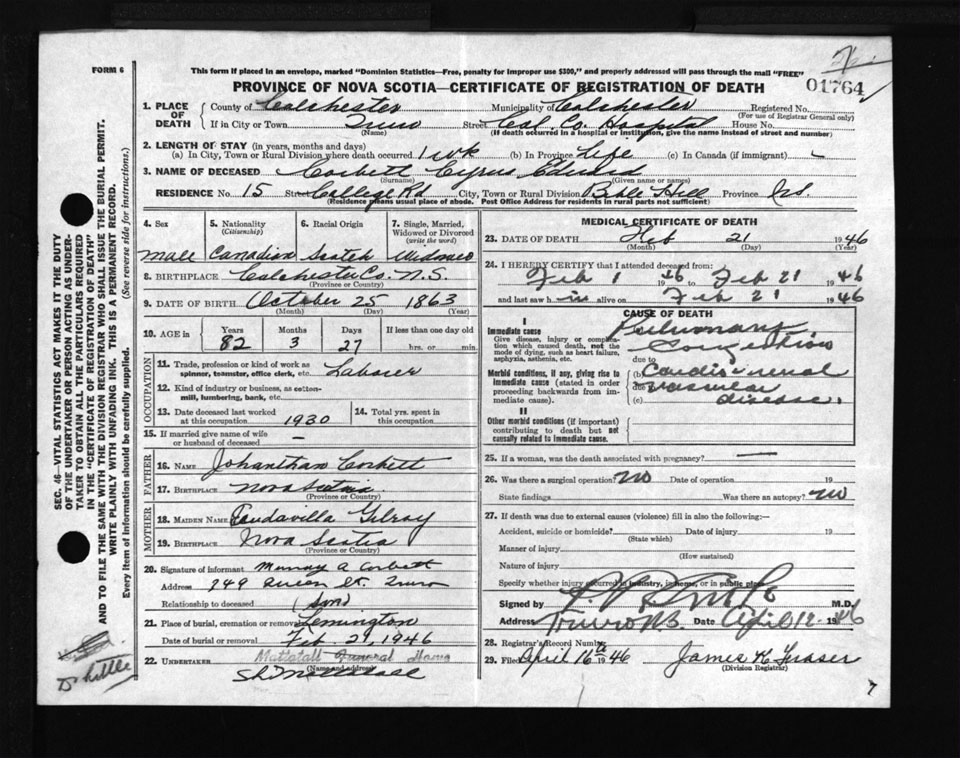 FORM 6
This form if placed in an envelope, marked "Dominion Statistics—Free, penalty for improper use $300," and properly addressed will pass through the mail "FREE"
PROVINCE OF NOVA SCOTIA—CERTIFICATE OF REGISTRATION OF DEATH
01764
1. PLACE OF DEATH
County of Colchester Municipality of Colchester Registered No.
(For use of Registrar General only)
If in City or Town Truro Street Col. Co. Hospital House No.
(Name) (If death occurred in a hospital or institution, give the name instead of street and number)
2. LENGTH OF STAY (in years, months and days)
(a) In City, Town or Rural Division where death occurred 1 wk (b) In Province Life (c) In Canada (if immigrant) -
3. NAME OF DECEASED Corbett Cyrus Edward
(Surname) (Given name or names)
RESIDENCE No. 15 Street College Rd City, Town or Rural Division Bible Hill Province N.S.
(Residence means usual place of abode. Post Office Address for residents in rural parts not sufficient)
4. Sex
male
5. Nationality
(Citizenship)
Canadian
6. Racial Origin
Scotch
7. Single, Married, Widowed or Divorced
(write the word)
Widowed
8. BIRTHPLACE Colchester Co. N.S.
(Province or Country)
9. DATE OF BIRTH October 25 1863
(Month) (Day) (Year)
10. AGE in
Years Months Days If less than one day old
82 3 27 hrs. or min.
OCCUPATION
11. Trade, profession or kind of work as spinner, teamster, office clerk, etc. Laborer
12. Kind of industry or business, as cotton-mill, lumbering, bank, etc.
13. Date deceased last worked at this occupation 1930
14. Total yrs. spent in this occupation
15. If married give name of wife or husband of deceased -
FATHER
16. NAME Johanthan Corbett
17. BIRTHPLACE Nova Scotia
(Province or Country)
MOTHER
18. MAIDEN NAME Gilroy
19. BIRTHPLACE Nova Scotia
(Province or Country)
20. Signature of informant Murray A Corbett
Address 249 Queen St. Truro
Relationship to deceased (Son)
21. Place of burial, cremation or removal Lemington
Date of burial or removal Feb 2 1946
22. UNDERTAKER Mattatall Funeral Home
(Name and address)
MEDICAL CERTIFICATE OF DEATH
23. DATE OF DEATH Feb 21 1946
(Month) (Day) (Year)
24. I HEREBY CERTIFY that I attended deceased from:
Feb 1 1946 to Feb 21 1946
and last saw h im alive on Feb 21 1946
CAUSE OF DEATH
I
Immediate cause
Give disease, injury or complication which caused death, not the mode of dying, such as heart failure, asphyxia, asthenia, etc.
Pulmonary
Congestion
due to
Morbid conditions, if any, giving rise to immediate cause (stated in order proceeding backwards from immediate cause).
(b) Cardio-renal
due to vascular
(c) disease.
II
Other morbid conditions (if important) contributing to death but not causally related to immediate cause.
25. If a woman, was the death associated with pregnancy? —
26. Was there a surgical operation? no Date of operation 19
State findings Was there an autopsy? no
27. If death was due to external causes (violence) fill in also the following:—
Accident, suicide or homicide? Date of injury 19
(State which)
Manner of injury
(How sustained)
Nature of injury
Specify whether injury occurred in industry, in home, or in public place
Signed by M.D.
Truro N.S. Date April 12 1946
28. Registrar's Record Number
29. Filed April 16th 1946 James K Fraser
(Division Registrar)
7
SEC. 46—VITAL STATISTICS ACT MAKES IT THE DUTY OF THE UNDERTAKER OR PERSON ACTING AS UNDERTAKER TO OBTAIN ALL THE PARTICULARS REQUIRED IN THE "CERTIFICATE OF REGISTRATION OF DEATH" AND TO FILE THE SAME WITH THE DIVISION REGISTRAR WHO SHALL ISSUE THE BURIAL PERMIT.
WRITE PLAINLY WITH UNFADING INK. THIS IS A PERMANENT RECORD.
Every item of information should be carefully supplied. (See reverse side for instructions.)